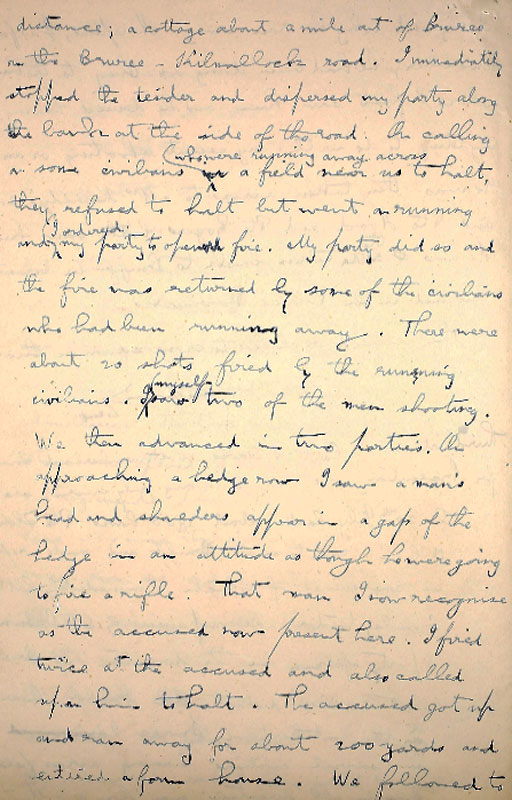 distance; a cottage about a mile out of Bruree
on the Bruree - Kilmallock road. I immediately
stopped the tender and dispersed my party along
the banks at the side of the road. On calling
who were running away across
on some civilians in a field near us to halt,
they refused to halt but went on running
I ordered
and my party to open fire. My party did so and
the fire was returned by some of the civilians
who had been running away. There were
about 20 shots fired by the running
myself
civilians. I saw two of the men shooting.
We then advanced in two parties. On
approaching a hedge row I saw a man's
head and shoulders appear in a gap of the
hedge in an attitude as though he were going
to fire a rifle. That man I now recognise
as the accused now present here. I fired
twice at the accused and also called
upon him to halt. The accused got up
and ran away for about 200 yards and
entered a farm house. We followed to